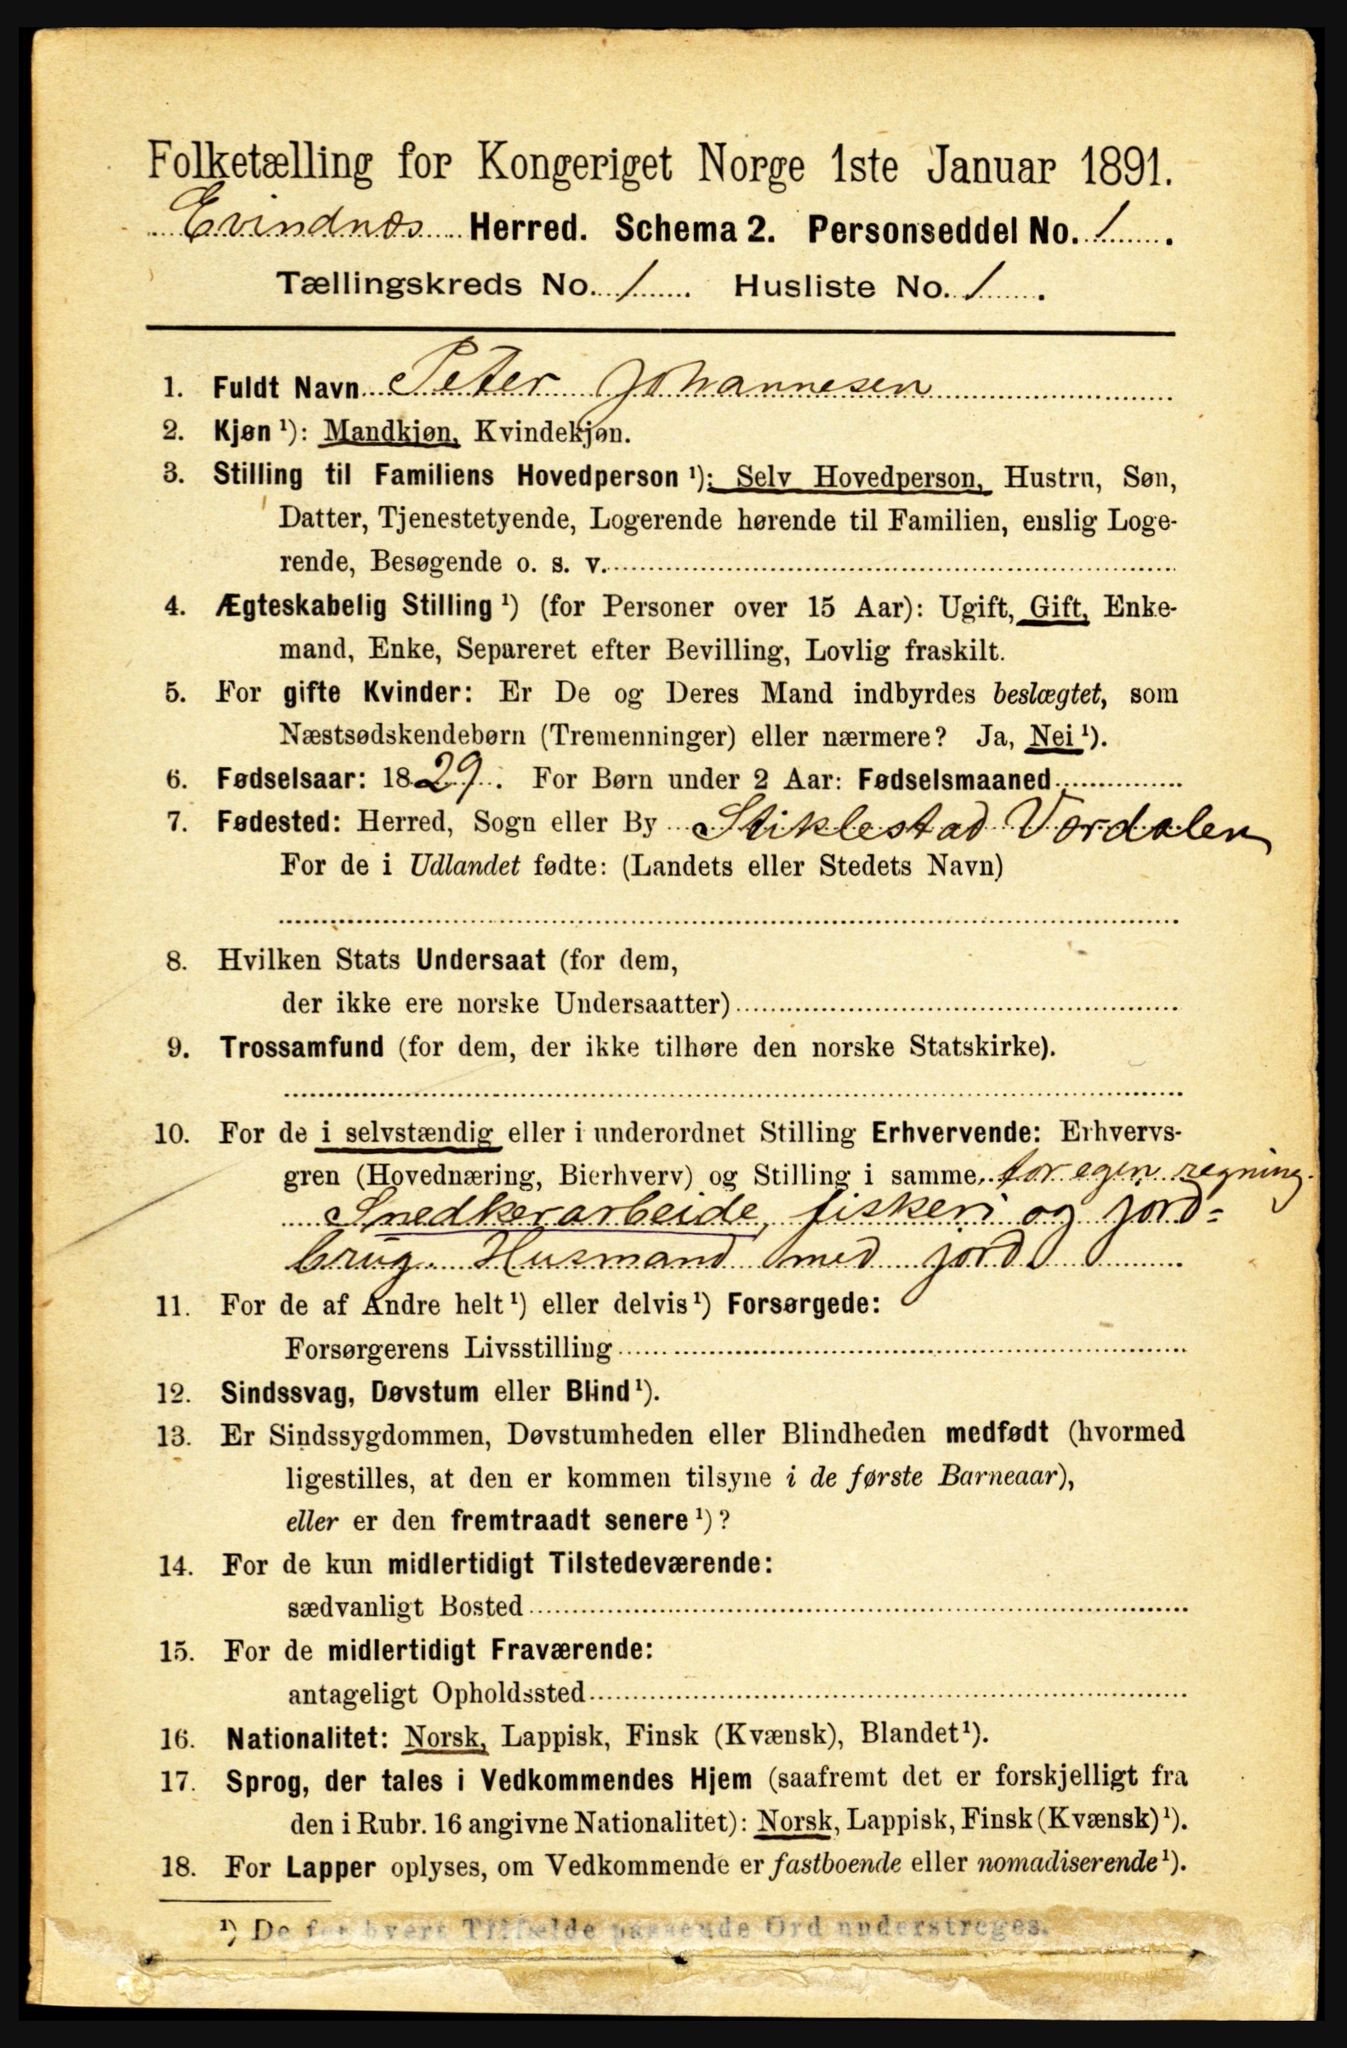 Folketælling for Kongeriget Norge 1ste Januar 1891.
Evindnæs Herred. Schema 2. Personseddel No. 1.
Tællingskreds No. 1. Husliste No. 1.
1. Fuldt Navn Peter Johannesen
2. Kjøn ¹): Mandkjøn, Kvindekjøn.
3. Stilling til Familiens Hovedperson ¹): Selv Hovedperson, Hustru, Søn,
Datter, Tjenestetyende, Logerende hørende til Familien, enslig Loge-
rende, Besøgende o. s. v.
4. Ægteskabelig Stilling ¹) (for Personer over 15 Aar): Ugift, Gift, Enke-
mand, Enke, Separeret efter Bevilling, Lovlig fraskilt.
5. For gifte Kvinder: Er De og Deres Mand indbyrdes beslægtet, som
Næstsødskendebørn (Tremenninger) eller nærmere? Ja, Nei ¹).
6. Fødselsaar: 1829. For Børn under 2 Aar: Fødselsmaaned
7. Fødested: Herred, Sogn eller By Stiklestad Værdalen
For de i Udlandet fødte: (Landets eller Stedets Navn)
8. Hvilken Stats Undersaat (for dem,
der ikke ere norske Undersaatter)
9. Trossamfund (for dem, der ikke tilhøre den norske Statskirke).
10. For de i selvstændig eller i underordnet Stilling Erhvervende: Erhvervs-
gren (Hovednæring, Bierhverv) og Stilling i samme. for egen regning.
Snedkerarbeide, fiskeri og jord=
brug. Husmand med jord.
11. For de af Andre helt ¹) eller delvis ¹) Forsørgede:
Forsørgerens Livsstilling
12. Sindssvag, Døvstum eller Blind ¹).
13. Er Sindssygdommen, Døvstumheden eller Blindheden medfødt (hvormed
ligestilles, at den er kommen tilsyne i de første Barneaar),
eller er den fremtraadt senere ¹)?
14. For de kun midlertidigt Tilstedeværende:
sædvanligt Bosted
15. For de midlertidigt Fraværende:
antageligt Opholdssted
16. Nationalitet: Norsk, Lappisk, Finsk (Kvænsk), Blandet ¹).
17. Sprog, der tales i Vedkommendes Hjem (saafremt det er forskjelligt fra
den i Rubr. 16 angivne Nationalitet): Norsk, Lappisk, Finsk (Kvænsk) ¹).
18. For Lapper oplyses, om Vedkommende er fastboende eller nomadiserende ¹).
¹) De for hvert Tilfælde passende Ord understreges.